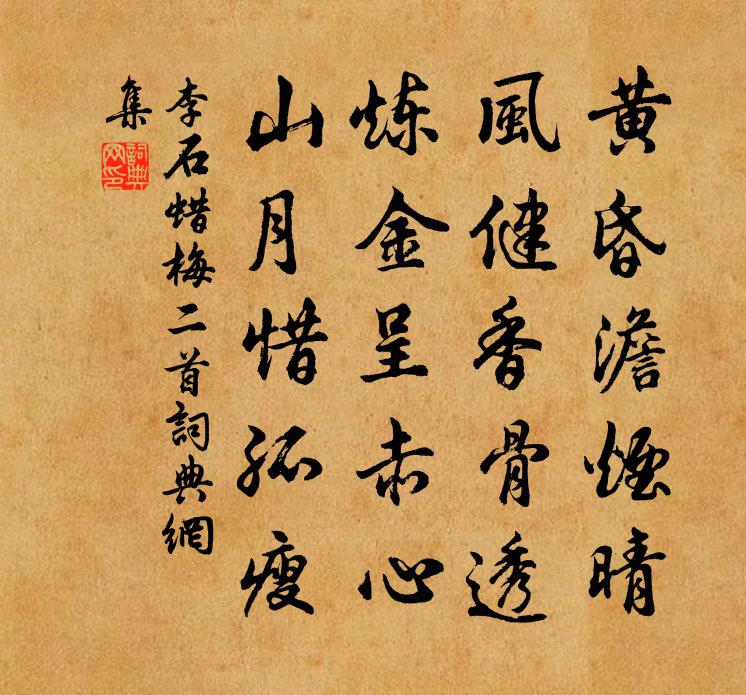 黄昏澹煙晴
風健香骨透
炼金呈赤心
山月惜孤瘦
李石蜡梅二首詞典網
集
詞典
网印